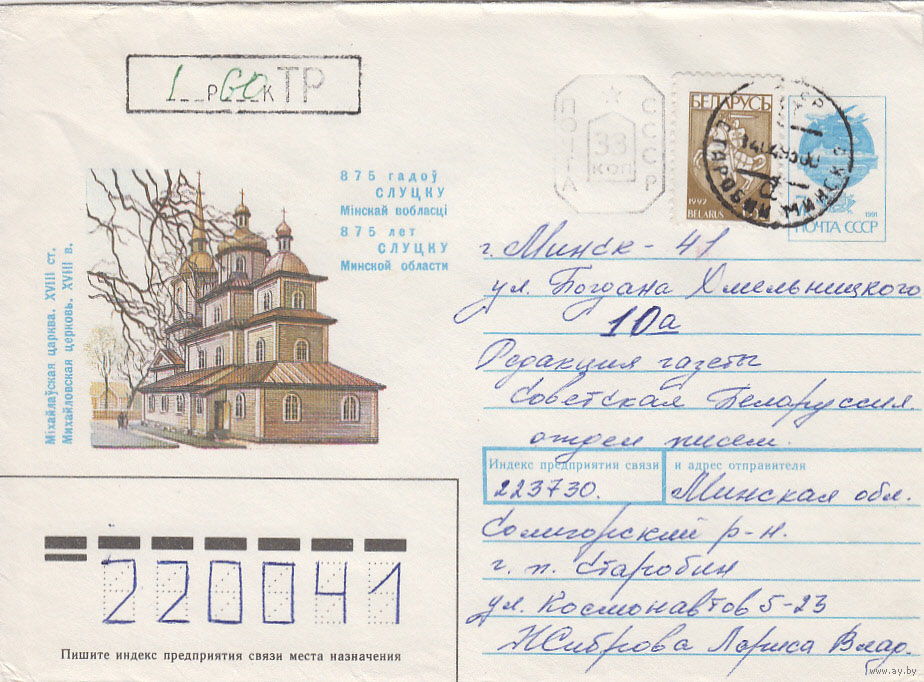 1 р 60 к ТР
ПОЧТА СССР
33
КОП
БЕЛАРУСЬ
1992
BELARUS
СТАРОБИН МИНСК
1991
ПОЧТА СССР
875 гадоў
СЛУЦКУ
Мінскай вобласці
875 лет
СЛУЦКУ
Минской области
Міхайлаўская царква. XVIII ст.
Михайловская церковь. XVIII в.
г. Минск - 41
ул. Богдана Хмельницкого
10а
Редакция газеты
Советская Белоруссия.
отдел писем.
Индекс предприятия связи
и адрес отправителя
223730.
Минская обл.
Солигорский р-н.
г. п. Старобин
ул. Космонавтов 5-23
Жиброва Лариса Влад.
220041
Пишите индекс предприятия связи места назначения
www.ay.by